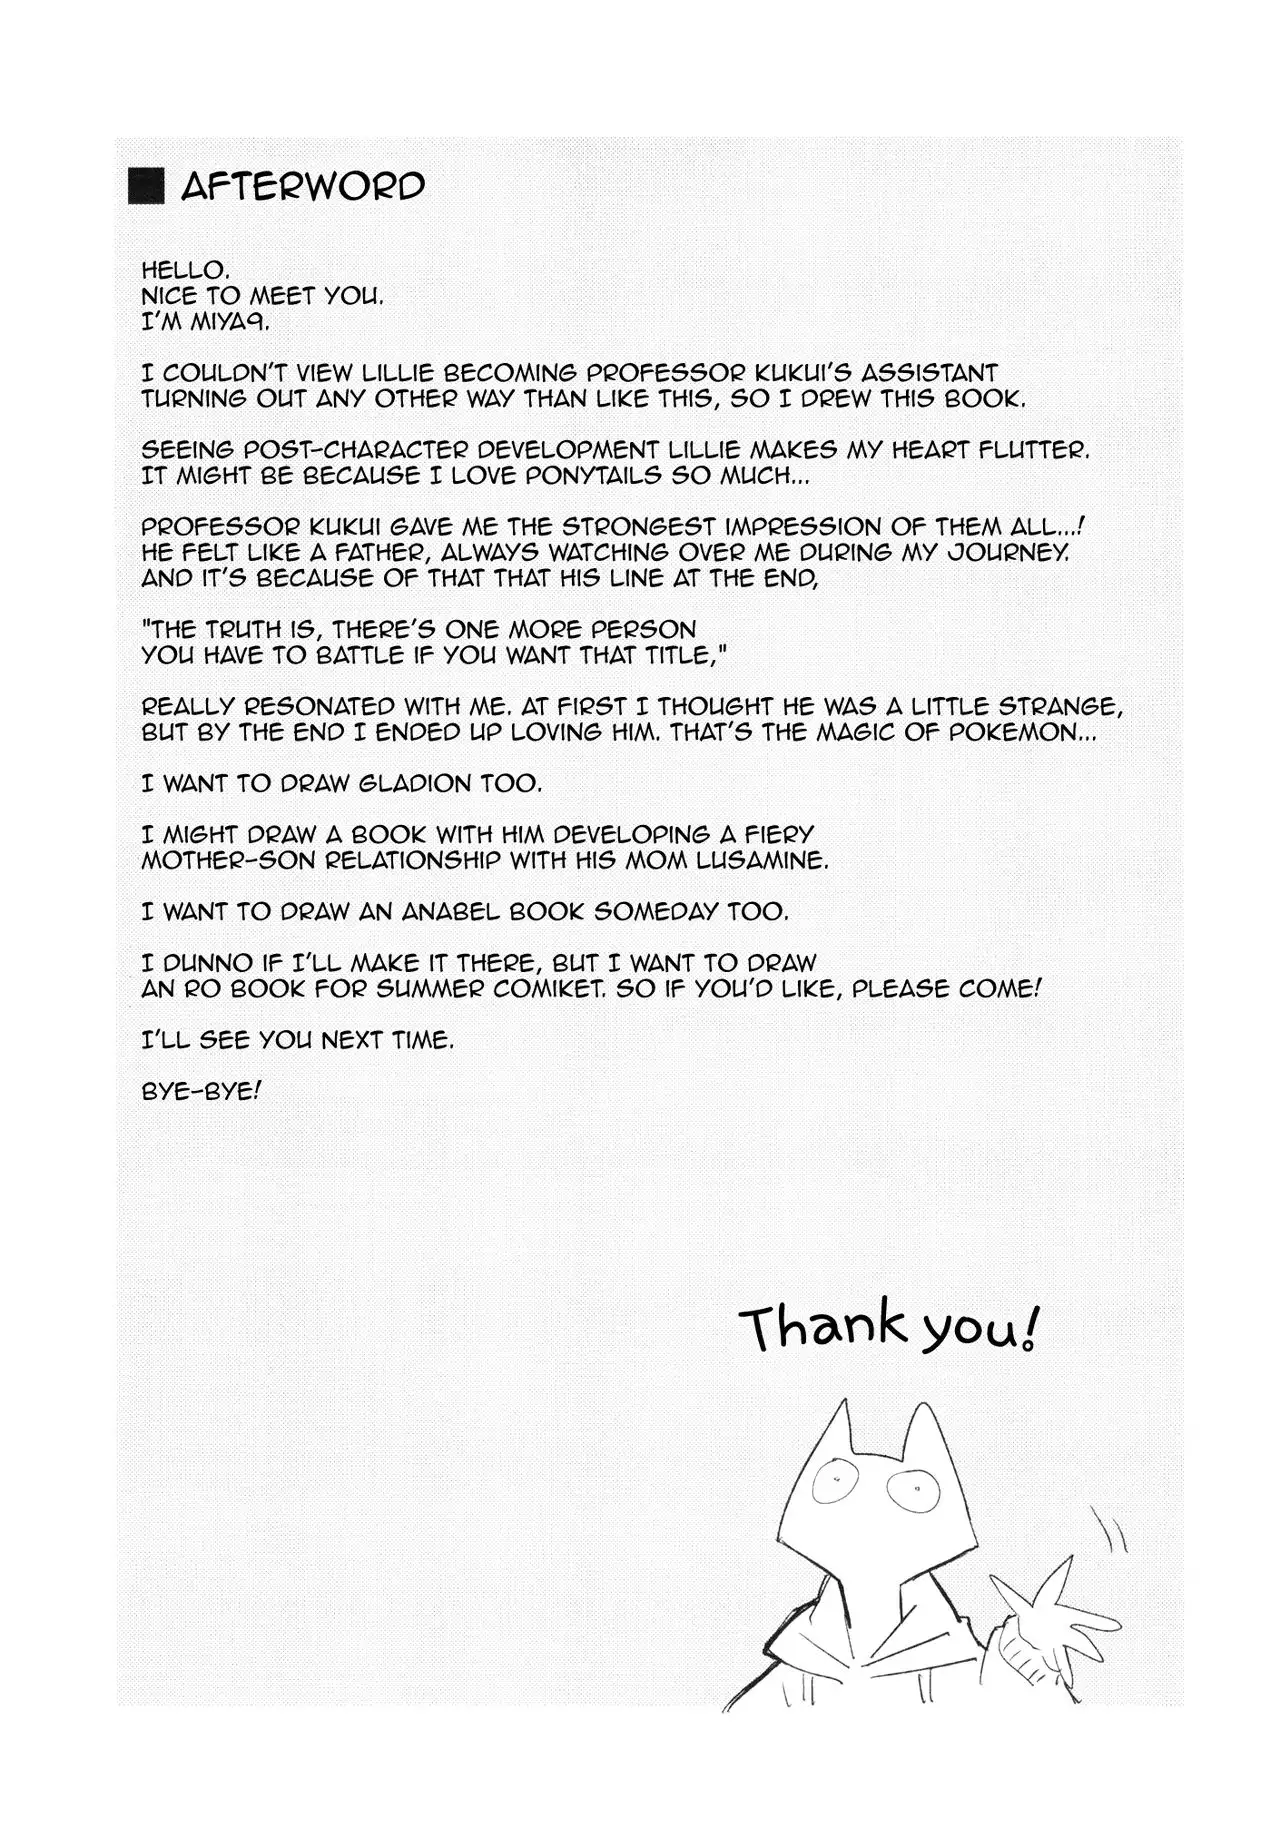 AFTERWORD
HELLO.
NICE TO MEET YOU.
I'M MIYA9.
I COULDN'T VIEW LILLIE BECOMING PROFESSOR KUKUI'S ASSISTANT
TURNING OUT ANY OTHER WAY THAN LIKE THIS, SO I DREW THIS BOOK.
SEEING POST-CHARACTER DEVELOPMENT LILLIE MAKES MY HEART FLUTTER.
IT MIGHT BE BECAUSE I LOVE PONYTAILS SO MUCH...
PROFESSOR KUKUI GAVE ME THE STRONGEST IMPRESSION OF THEM ALL...!
HE FELT LIKE A FATHER, ALWAYS WATCHING OVER ME DURING MY JOURNEY.
AND IT'S BECAUSE OF THAT THAT HIS LINE AT THE END,
"THE TRUTH IS, THERE'S ONE MORE PERSON
YOU HAVE TO BATTLE IF YOU WANT THAT TITLE,"
REALLY RESONATED WITH ME. AT FIRST I THOUGHT HE WAS A LITTLE STRANGE,
BUT BY THE END I ENDED UP LOVING HIM. THAT'S THE MAGIC OF POKEMON...
I WANT TO DRAW GLADION TOO.
I MIGHT DRAW A BOOK WITH HIM DEVELOPING A FIERY
MOTHER-SON RELATIONSHIP WITH HIS MOM LUSAMINE.
I WANT TO DRAW AN ANABEL BOOK SOMEDAY TOO.
I DUNNO IF I'LL MAKE IT THERE, BUT I WANT TO DRAW
AN RO BOOK FOR SUMMER COMIKET. SO IF YOU'D LIKE, PLEASE COME!
I'LL SEE YOU NEXT TIME.
BYE-BYE!
Thank you!